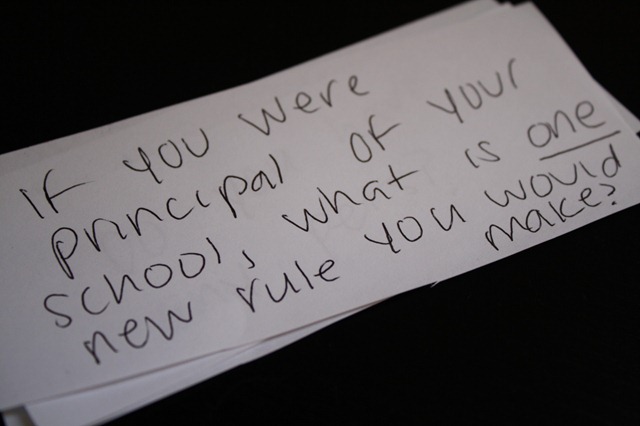 If you were
principal of your
school, what is one
new rule you would
make?